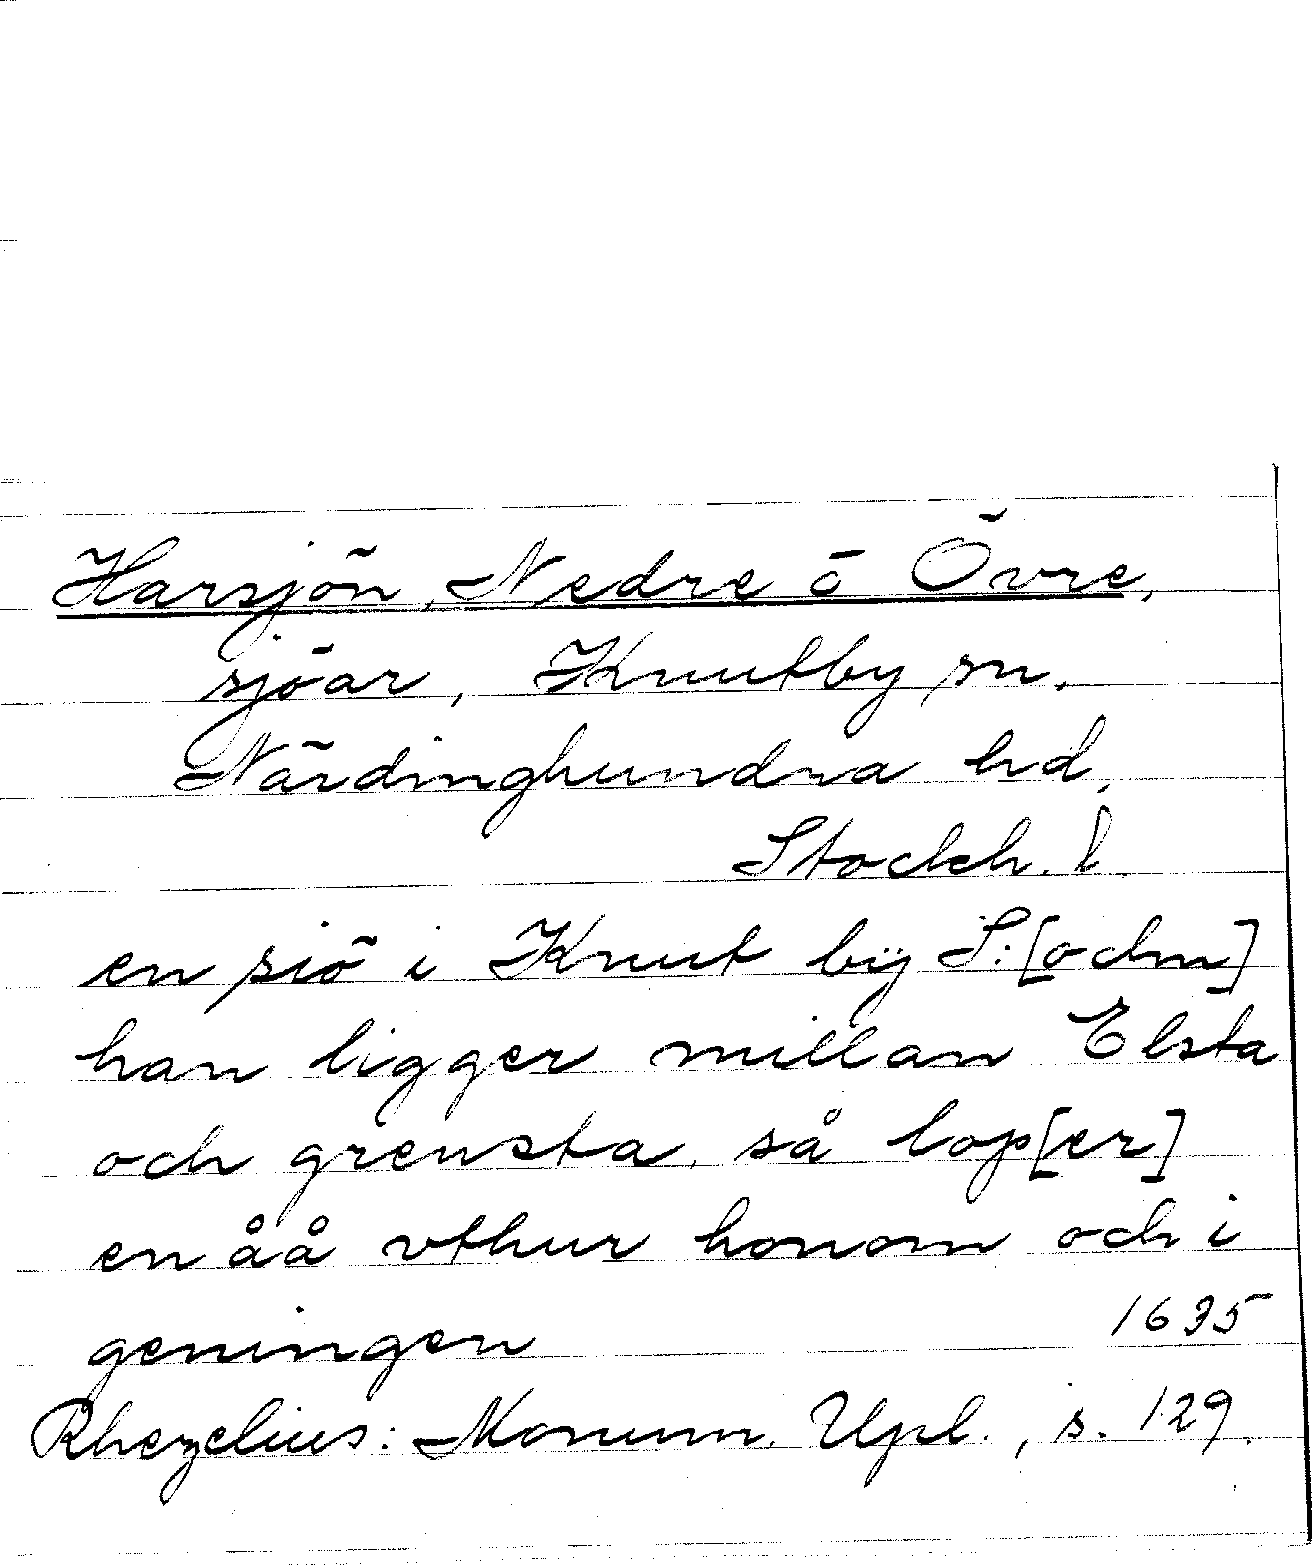 Harsjön, Nedre o Övre,
sjöar, Knutby sn.
Närdinghundra hd,
Stockh. l.
en siö i Knut bÿ S:[ochn]
han ligger millan Elsta
och grensta, så lop[er]
en åå vthur honom och i
geningen 1635
Rhezelius: Monum. Upl., s. 129.